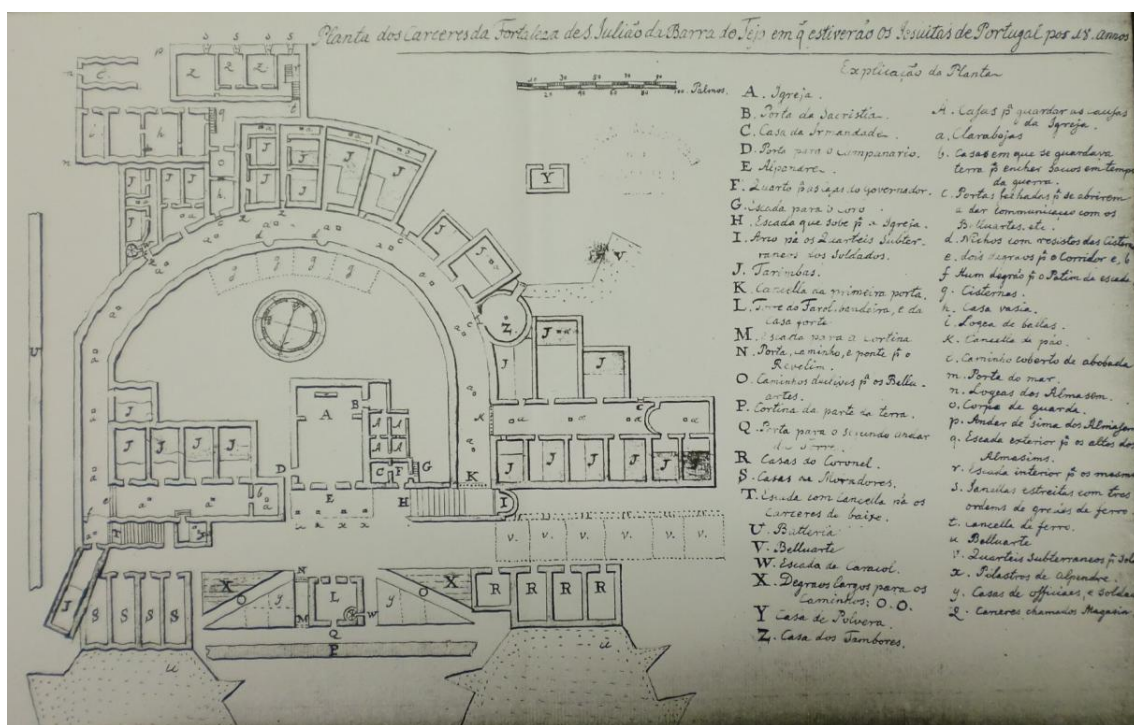 Planta dos Carceres da Fortaleza de S. Julião da Barra do Tejo em q̃ estiverão os Jesuitas de Portugal por 18. annos
Explicação da Planta
10 30 50 70 90
20 40 60 80 100 Palmos.
A. Igreja.
B. Porta da Sacristia.
C. Casa da Irmandade.
D. Porta para o Campanario.
E. Alpendre.
F. Quarto p̃ as do Governador.
G. Escada para o coro
H. Escada que sobe p̃ a Igreja.
I. Arco os Quarteis Subter-
raneos dos Soldados.
J. Tarimbas.
K. Cancella da primeira porta.
L. Torre do Farol, bandeira, e da
Casa forte
M. Escada para a Cortina
N. Porta, caminho, e ponte p̃ o
Revelim.
O. Caminhos p̃ os Bellu-
artes.
P. Cortina da parte da terra.
Q. Porta para o segundo andar
da Torre.
R. Casas do Coronel.
S. Casas de Moradores.
T. Escada com Cancella os
carceres de baixo.
U. Batteria
V. Belluarte
W. Escada de Caracol.
X. Degraos largos para os
Caminhos; O. O.
Y Casa de Polvera.
Z. Casa dos Tambores.
A. Casas p̃ guardar as
da Igreja.
a. Clarabojas
b. Casas em que se guardava
terra p̃ encher sacos em tempo
da guerra.
c. Portas fechadas p̃ se abrirem
a dar communicação com os
Belluartes, etc.
d. Nichos com resistos das Cistern
e. dois degraos p̃ o Corridor e, b
f Hum degráo p̃ o Patim da escada
g. Cisternas.
h. Casa vasia.
i. Logea de ballas.
k. Cancella de páo.
Caminho coberto de abobada
m. Porta do mar.
n. Logeas dos Almasem.
o. Corpo de guarda.
p. Andar de sima dos
q. Escada exterior p̃ os altos dos
Almasims.
r. Escada interior p̃ os mesmos
s. Janellas estreitas com tres
ordems de grades de ferro.
t. Cancella de ferro.
u Belluarte
v. Quarteis Subterraneos p̃
x. Pilastres do Alpendre.
y. Casas de officiaes, e soldad
2. Carceres chamados